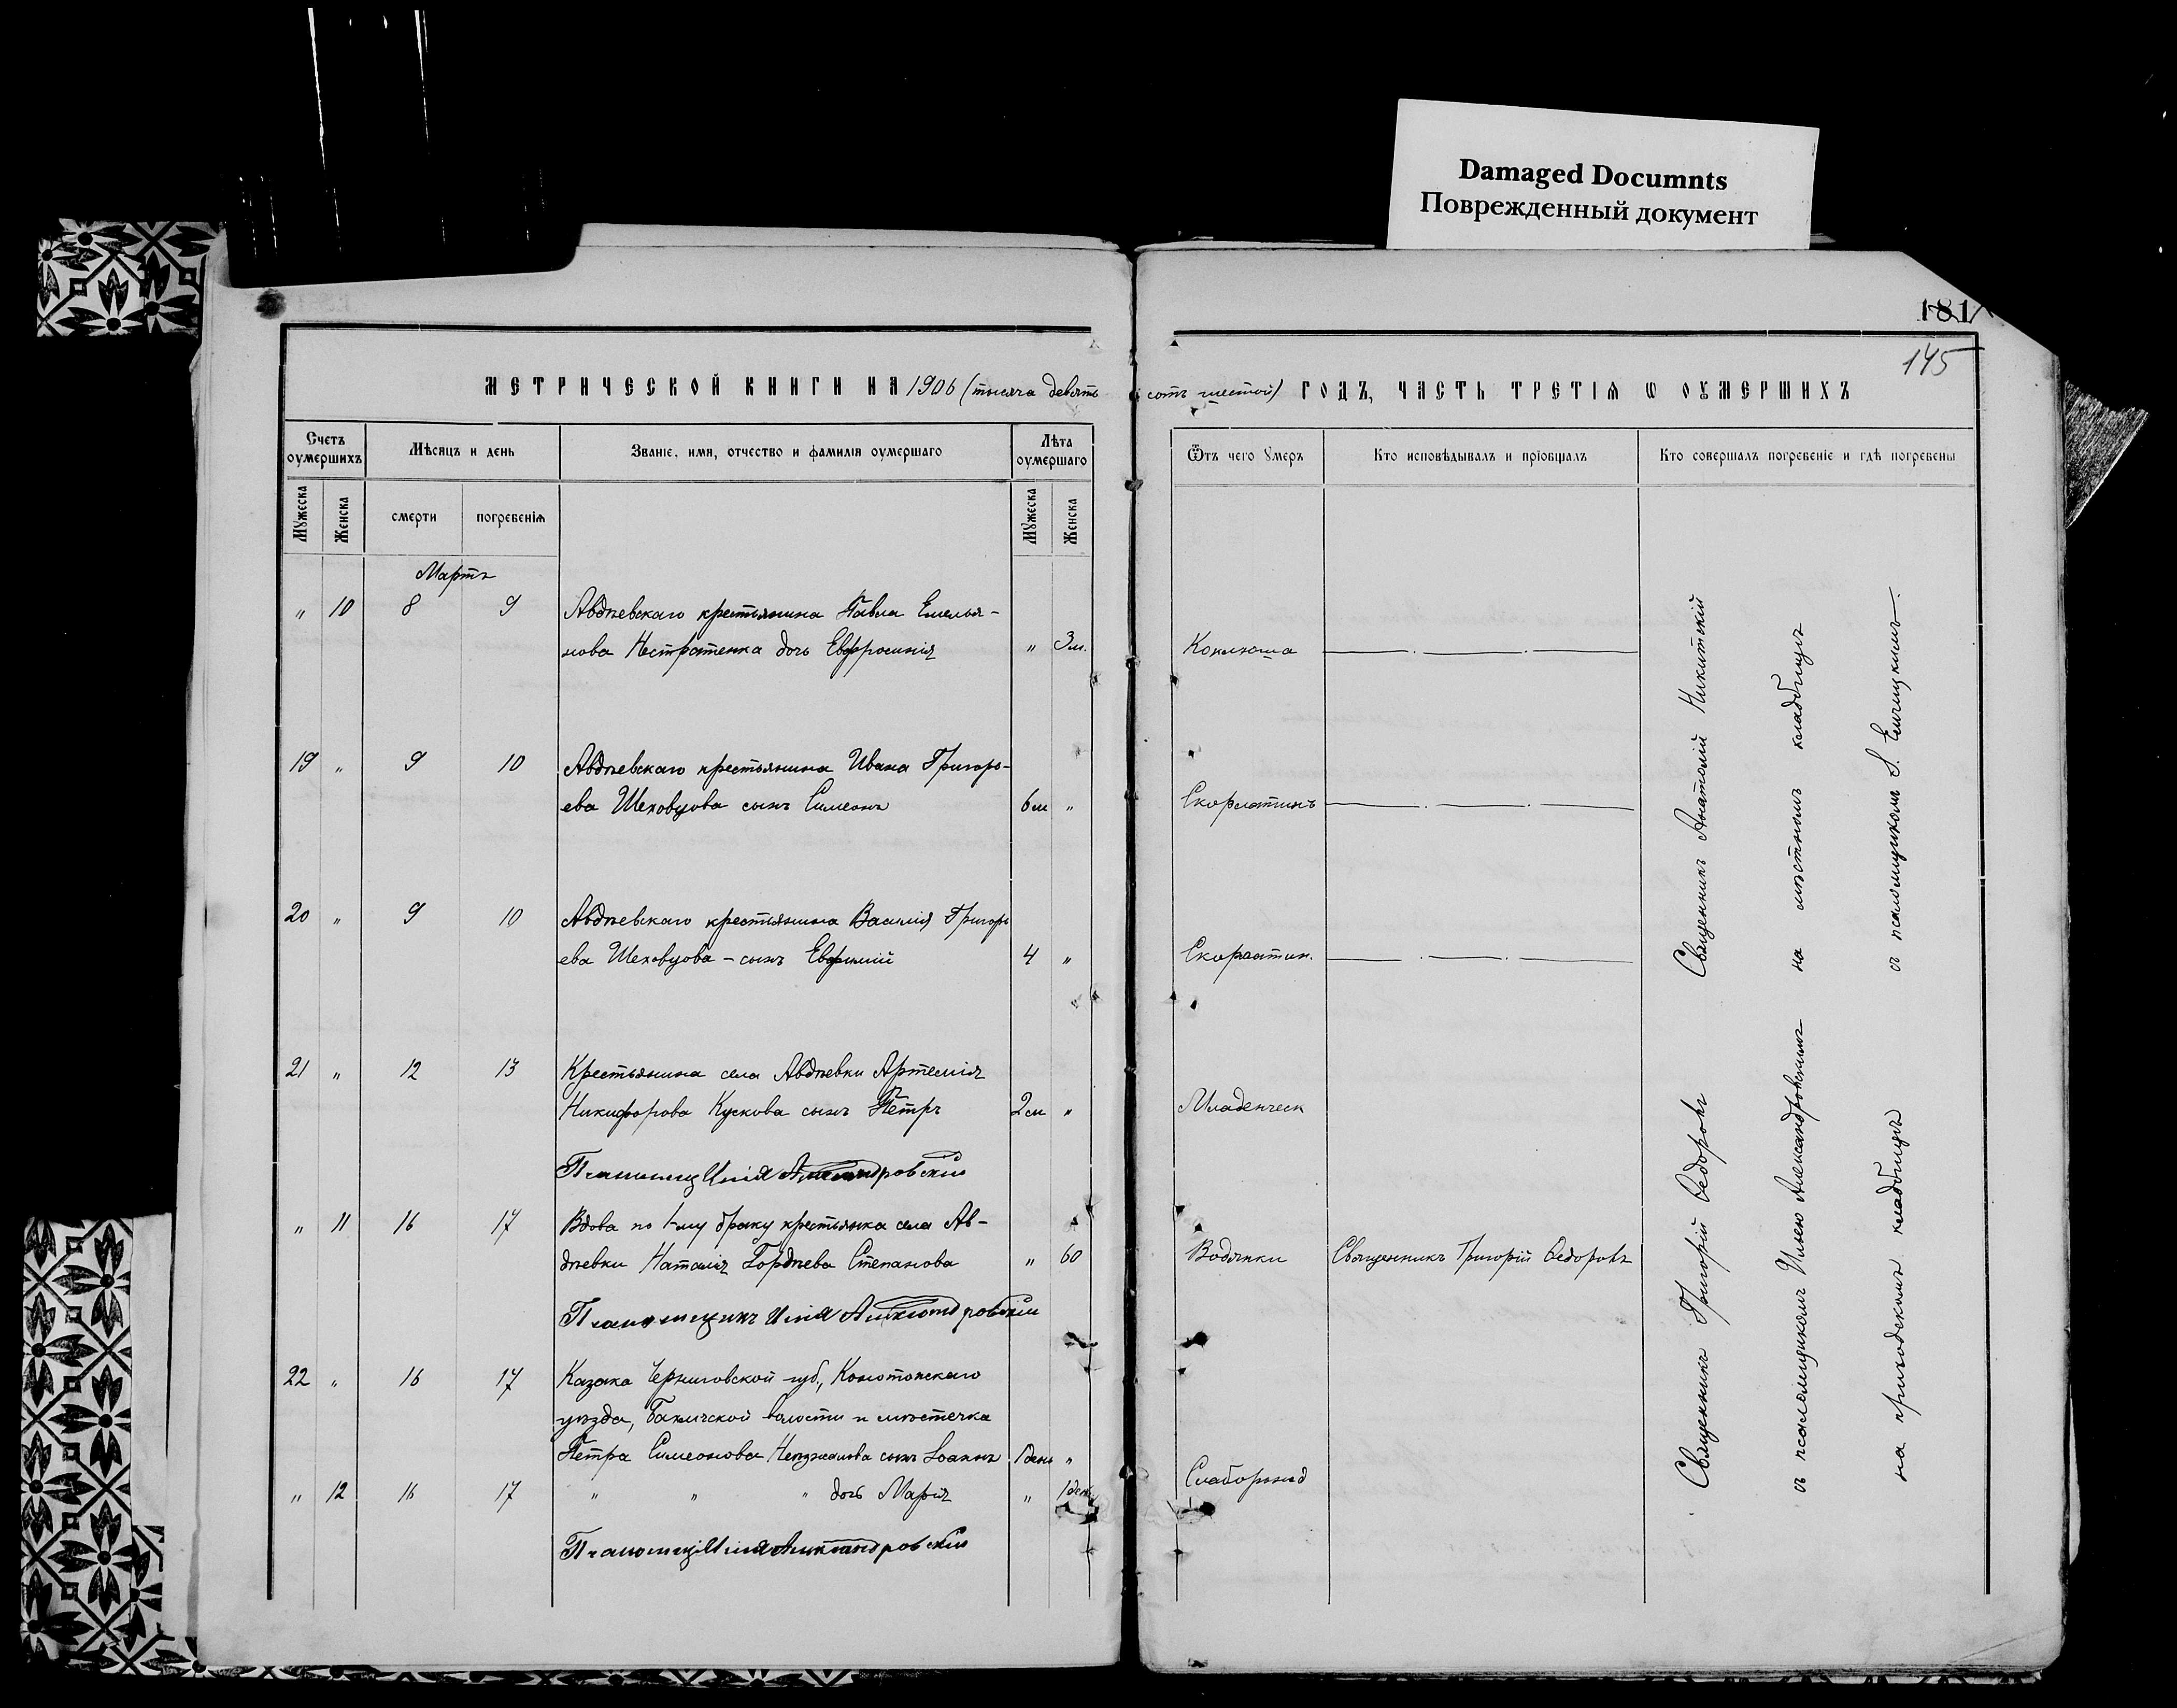 Damaged Documnts
Поврежденный документ
181
145
МЕТРИЧЕСКОЙ КНИГИ НА 1906 (тысяча девять сотъ шестой) ГОДЪ, ЧАСТЬ ТРЕТІѦ Ѡ ОУМЕРШИХЪ
Счетъ оумершихъ
Мѣсяцъ и день
Званіе, имя, отчество и фамилія оумершаго
Лѣта оумершаго
Ѿтъ чего Умеръ
Кто исповѣдывалъ и пріобщалъ
Кто совершалъ погребеніе и гдѣ погребены
МУжеска
Женска
смерти
погребеніѧ
МУжеска
Женска
Мартъ
„ 10 8 9 Авдѣевскаго крестьянина Павла Емелья-
нова Нестратенка дочь Евфросинія „ 3 м. Коклюша
19 „ 9 10 Авдѣевскаго крестьянина Ивана Григорь-
ева Шеховцова сынъ Симеонъ 6 м „ Скорлатинъ
20 „ 9 10 Авдѣевскаго крестьянина Василія Григорь
ева Шеховцова – сынъ Евфимій 4 „ Скорлатин.
21 „ 12 13 Крестьянина села Авдѣевки Артемія
Никифорова Кускова сынъ Петръ 2 м „ Младенческ
Псаломщ Илія Александровскій
„ 11 16 17 Вдова по 1-му браку крестьянка села Ав-
дѣевки Наталія Гордѣева Степанова „ 60 Водянки Священникъ Григорій Ѳедоровъ
Псаломщикъ Илія Александровскій
22 „ 16 17 Казака Черниговской губ., Конотопскаго
уѣзда, волости и мѣстечка
Петра Симеонова сынъ Іоаннъ 1 день „
Слаборожд
„ 12 16 17 „ „ „ дочь Марія „ 1 ден
Псаломщ Илія Александровскій
Священникъ Анатолій Никитскій
на мѣстномъ кладбищѣ
съ псаломщикомъ
Священникъ Григорій Ѳедоровъ
съ псаломщикомъ Ильею Александровскимъ
на приходскомъ кладбищѣ